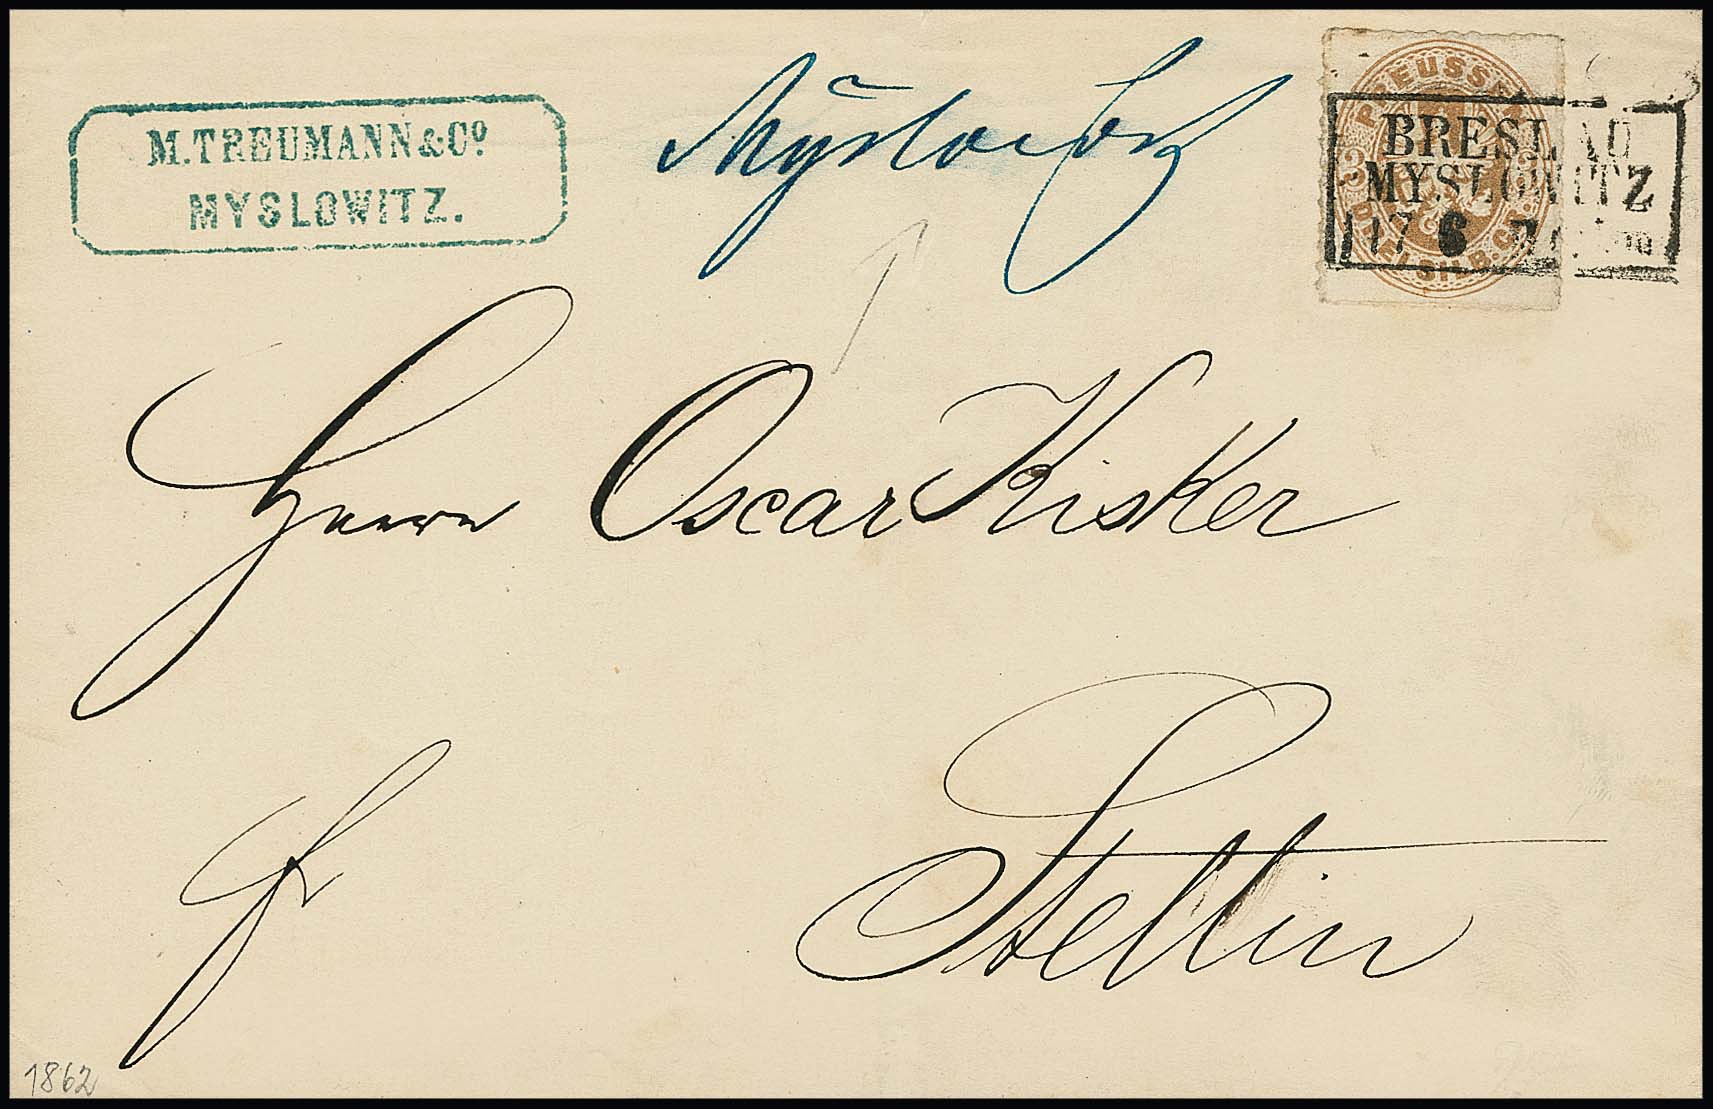 M. TREUMANN & Cº
MYSLOWITZ.
Myslowitz
PREUSSEN
DREI SILB. GR.
3 3
BRESLAU
MYSLOWITZ
117 6
Herrn Oscar Kisker
Stettin
fr
1862